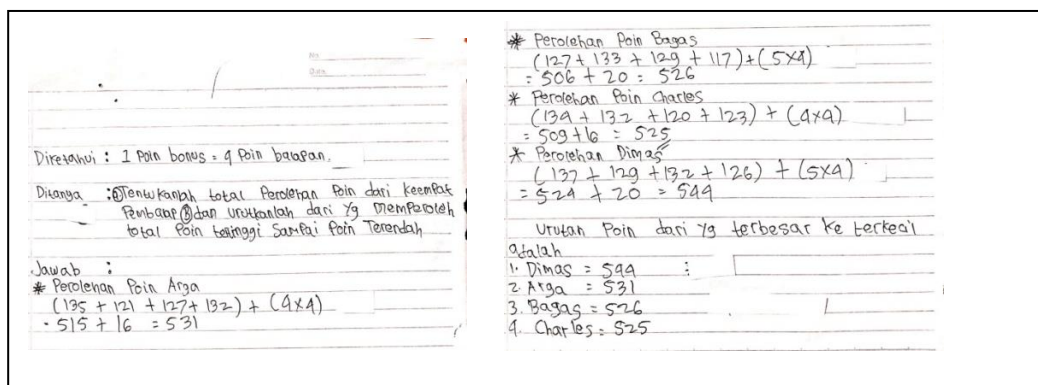 No
Date
Diketahui : 1 Poin bonus = 4 Poin balapan.
Ditanya : ① Tentukanlah total Perolehan Poin dari keempat
Pembalap ② dan urutkanlah dari yg memperoleh
total Poin tertinggi Sampai Poin Terendah
Jawab :
* Perolehan Poin Arga
(135 + 121 + 127 + 132) + (4x4)
= 515 + 16 = 531
* Perolehan Poin Bagas
(127 + 133 + 129 + 117) + (5x4)
= 506 + 20 = 526
* Perolehan Poin Charles
(134 + 132 + 120 + 123) + (4x4)
= 509 + 16 = 525
* Perolehan Dimas
(137 + 129 + 132 + 126) + (5x4)
= 524 + 20 = 544
Urutan Poin dari yg terbesar ke terkecil
adalah
1. Dimas = 544 :
2. Arga = 531
3. Bagas = 526
4. Charles = 525